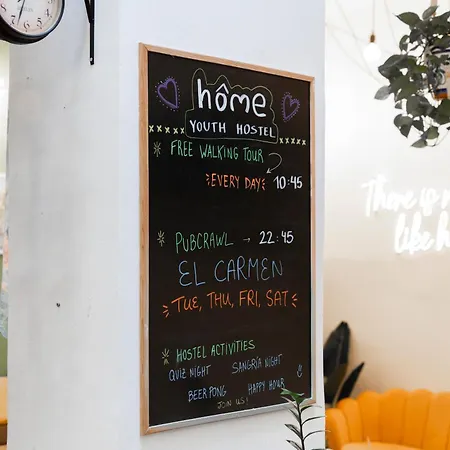 hôme
YOUTH HOSTEL
FREE WALKING TOUR
EVERY DAY 10:45
PUBCRAWL → 22:45
EL CARMEN
TUE, THU, FRI, SAT
HOSTEL ACTIVITIES
QUIZ NIGHT SANGRÍA NIGHT
BEER PONG HAPPY HOUR
JOIN US!
There is
like